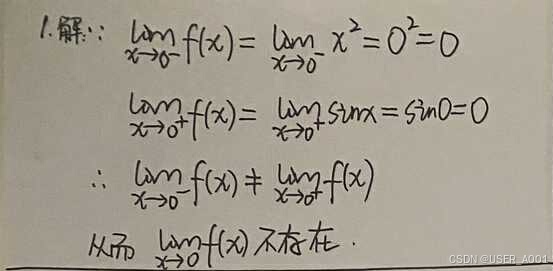 1.解:∵ lim_{x→0⁻} f(x) = lim_{x→0⁻} x² = 0² = 0
lim_{x→0⁺} f(x) = lim_{x→0⁺} sinx = sin0 = 0
∴ lim_{x→0⁻} f(x) ≠ lim_{x→0⁺} f(x)
从而 lim_{x→0} f(x) 不存在.
CSDN @USER_A001